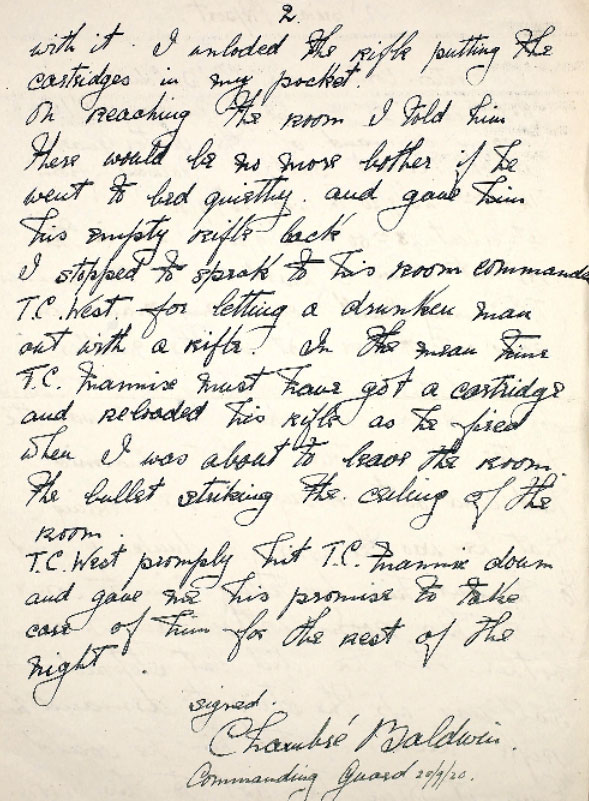 2
with it. I unloded the rifle putting the
cartridges in my pocket.
On reaching the room I told him
there would be no more bother if he
went to bed quietly. and gave him
his empty rifle back
I stopped to speak to his room commande
T.C. West for letting a drunken man
out with a rifle. In the mean time
T.C. Mannix must have got a cartridge
and reloaded his rifle as he fired
when I was about to leave the room
the bullet striking the ceiling of the
room.
T.C. West promply hit T.C. Mannix down
and gave me his promise to take
care of him for the rest of the
night.
signed.
Chambré Baldwin.
Commanding Guard 20/9/20.